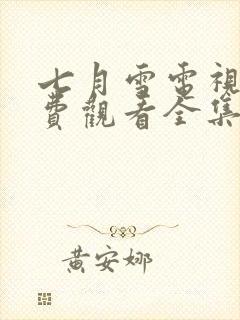 七月雪電視
費觀看全集
黃安娜